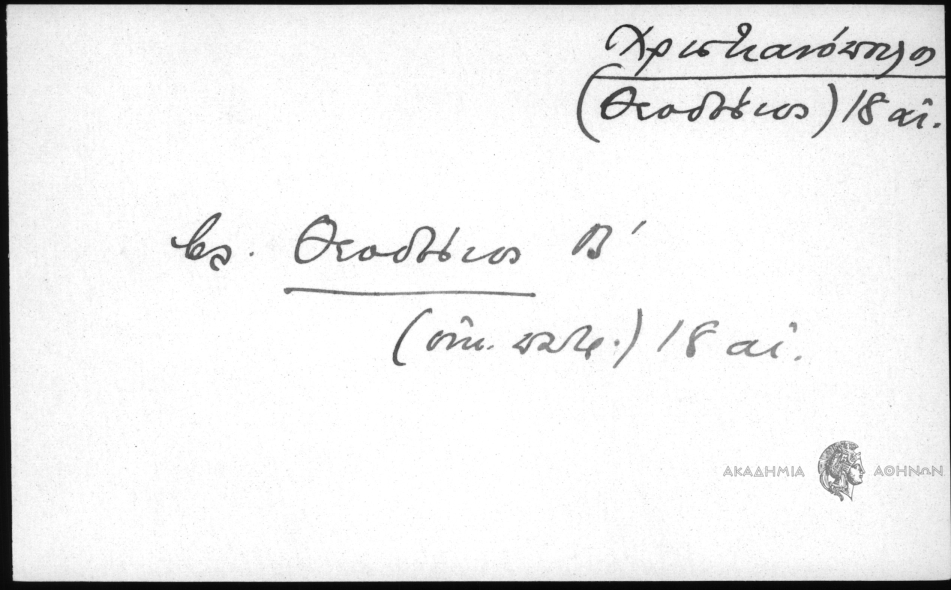 Χριστιανόπουλος
(Θεοδόσιος) 18 αἰ.
βλ. Θεοδόσιος Β΄
(οἰκ. πατρ.) 18 αἰ.
ΑΚΑΔΗΜΙΑ ΑΘΗΝΩΝ